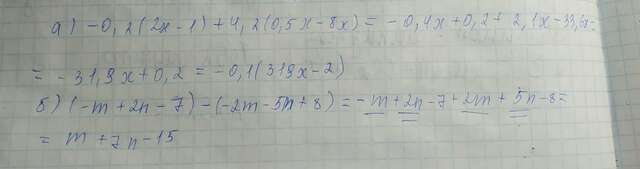 а) -0,2(2x-1)+4,2(0,5x-8x)= -0,4x+0,2+2,1x-33,6x=
= -31,9x+0,2 = -0,1(319x-2)
б) (-m+2n-7)-(-2m-5n+8)= -m+2n-7+2m+5n-8=
= m+7n-15